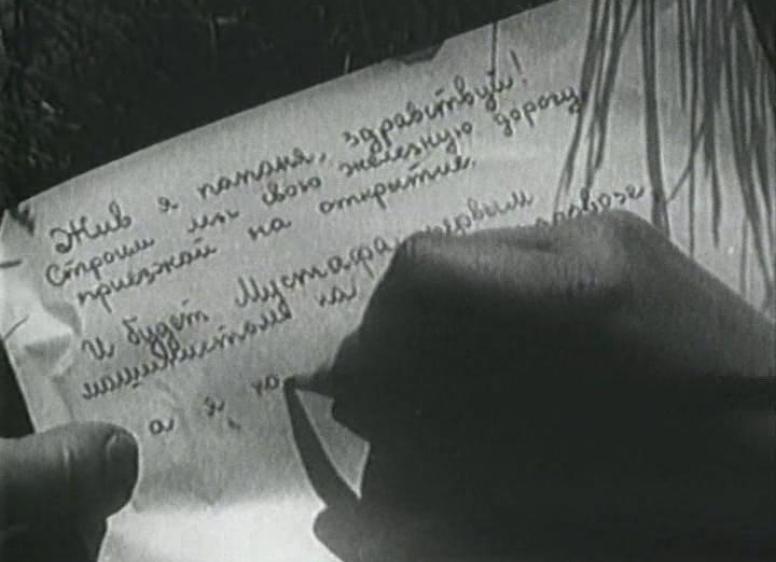 Жив я папаня, здравствуй!
Строим мы свою железную дорогу
приезжай на открытие.
И будет Мустафа первым
машинистом на паровозе
а я, ко